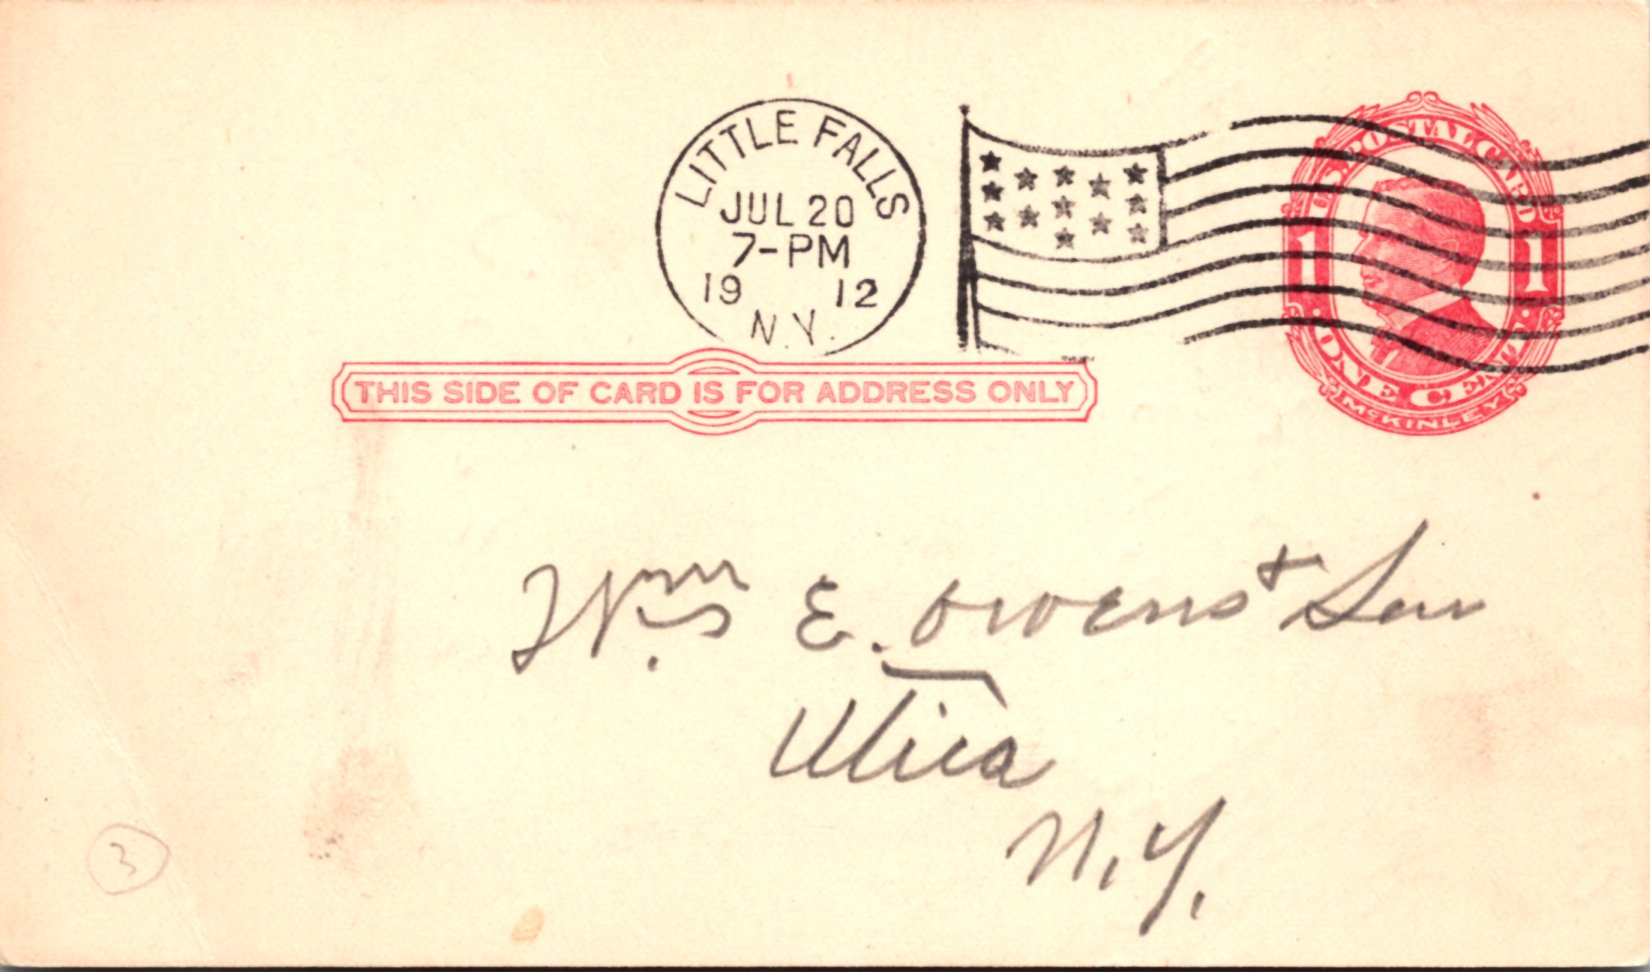 LITTLE FALLS
JUL 20
7-PM
19 12
N.Y.
U.S. POSTAL CARD
1 1
· ONE CENT ·
McKINLEY
THIS SIDE OF CARD IS FOR ADDRESS ONLY
Wm. E. Owens + Son
Utica
N.Y.
3